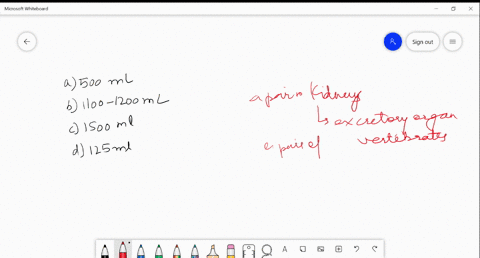 Microsoft Whiteboard
Sign out
a) 500 mL
b) 1100-1200 mL
c) 1500 ml
d) 125 ml
a pair of Kidneys
↳ excretory organ
vertebrates
a pair of